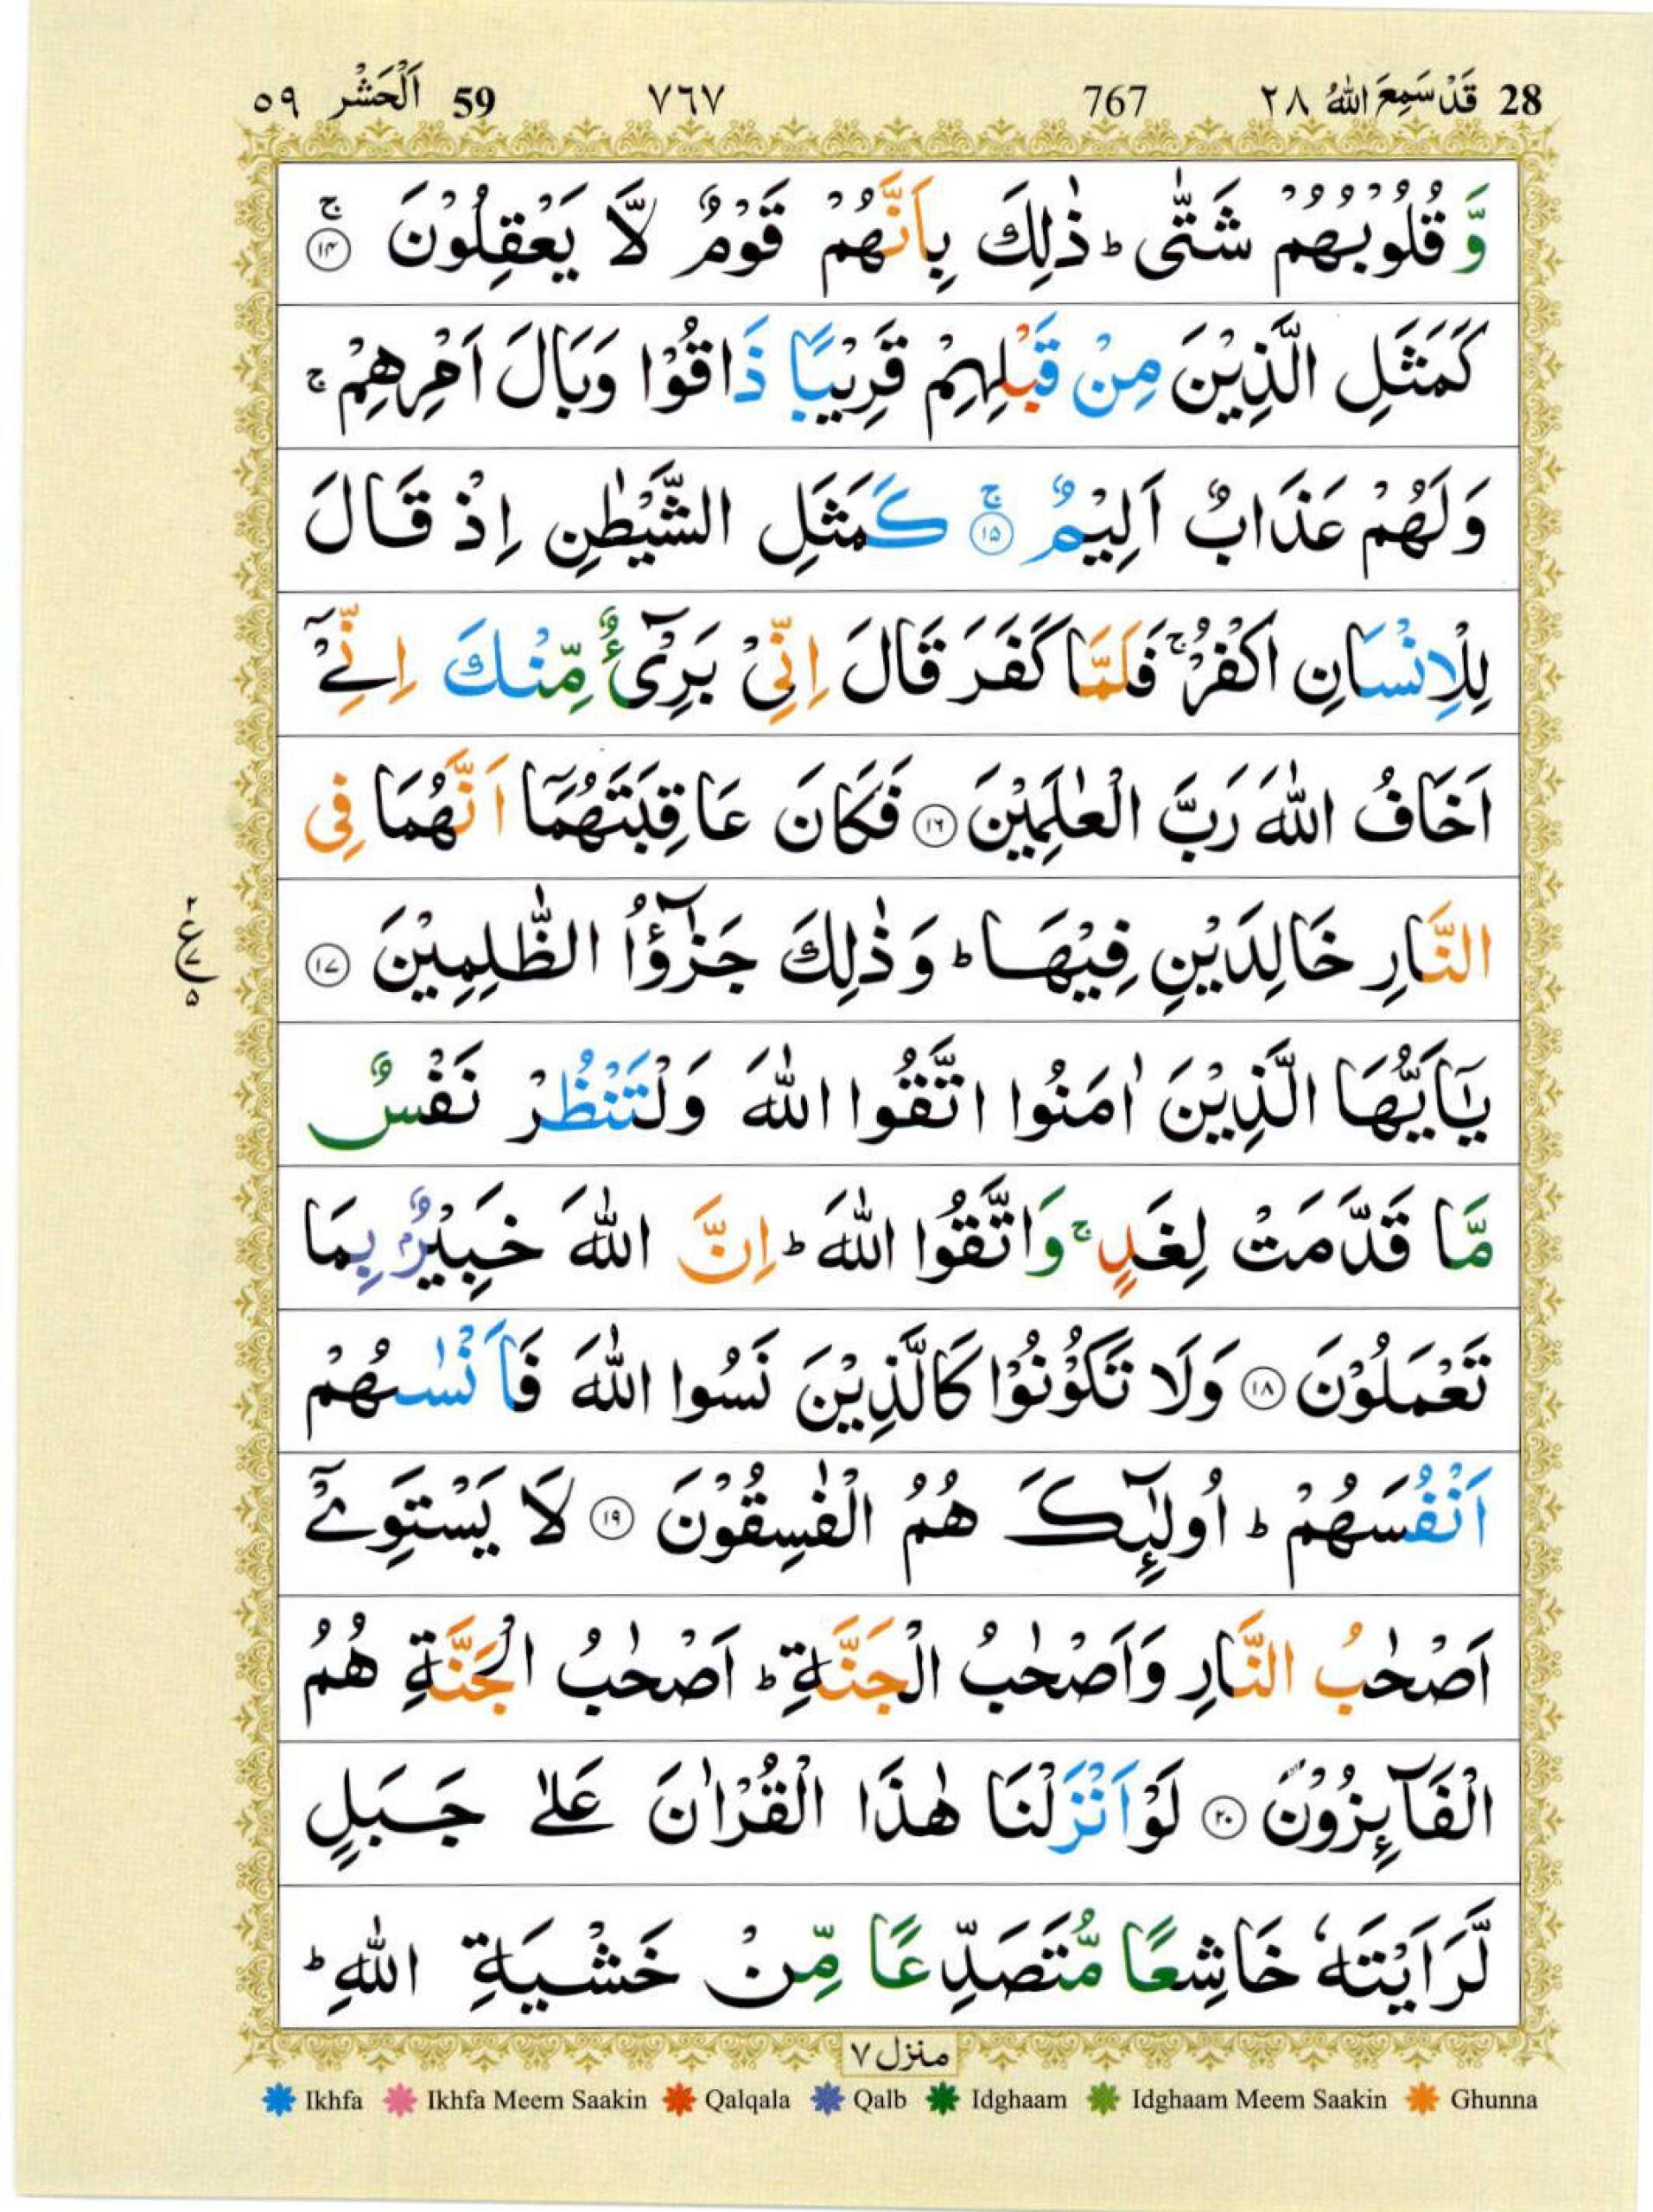 28 قَدْ سَمِعَ اللّٰهُ ٢٨ 767 ٧٦٧ 59 اَلْحَشْر ٥٩
وَّ قُلُوْبُهُمْ شَتّٰى ؕ ذٰلِكَ بِاَنَّهُمْ قَوْمٌ لَّا يَعْقِلُوْنَ ۚ ﴿۱۴﴾
كَمَثَلِ الَّذِيْنَ مِنْ قَبْلِهِمْ قَرِيْبًا ذَاقُوْا وَبَالَ اَمْرِهِمْ ۚ
وَلَهُمْ عَذَابٌ اَلِيْمٌ ۚ ﴿۱۵﴾ كَمَثَلِ الشَّيْطٰنِ اِذْ قَالَ
لِلْاِنْسَانِ اكْفُرْ ۚ فَلَمَّا كَفَرَ قَالَ اِنِّيْ بَرِيْٓءٌ مِّنْكَ اِنِّيْٓ
اَخَافُ اللّٰهَ رَبَّ الْعٰلَمِيْنَ ﴿۱۶﴾ فَكَانَ عَاقِبَتَهُمَاۤ اَنَّهُمَا فِى
النَّارِ خَالِدَيْنِ فِيْهَا ؕ وَذٰلِكَ جَزٰٓؤُا الظّٰلِمِيْنَ ﴿۱۷﴾
٢
ع
٧
٥
يٰۤاَيُّهَا الَّذِيْنَ اٰمَنُوا اتَّقُوا اللّٰهَ وَلْتَنْظُرْ نَفْسٌ
مَّا قَدَّمَتْ لِغَدٍ ۚ وَاتَّقُوا اللّٰهَ ؕ اِنَّ اللّٰهَ خَبِيْرٌۢ بِمَا
تَعْمَلُوْنَ ﴿۱۸﴾ وَلَا تَكُوْنُوْا كَالَّذِيْنَ نَسُوا اللّٰهَ فَاَنْسٰىهُمْ
اَنْفُسَهُمْ ؕ اُولٰٓئِكَ هُمُ الْفٰسِقُوْنَ ﴿۱۹﴾ لَا يَسْتَوِيْٓ
اَصْحٰبُ النَّارِ وَاَصْحٰبُ الْجَنَّةِ ؕ اَصْحٰبُ الْجَنَّةِ هُمُ
الْفَآئِزُوْنَ ﴿۲۰﴾ لَوْ اَنْزَلْنَا هٰذَا الْقُرْاٰنَ عَلٰى جَبَلٍ
لَّرَاَيْتَهٗ خَاشِعًا مُّتَصَدِّعًا مِّنْ خَشْيَةِ اللّٰهِ ؕ
منزل ٧
Ikhfa Ikhfa Meem Saakin Qalqala Qalb Idghaam Idghaam Meem Saakin Ghunna